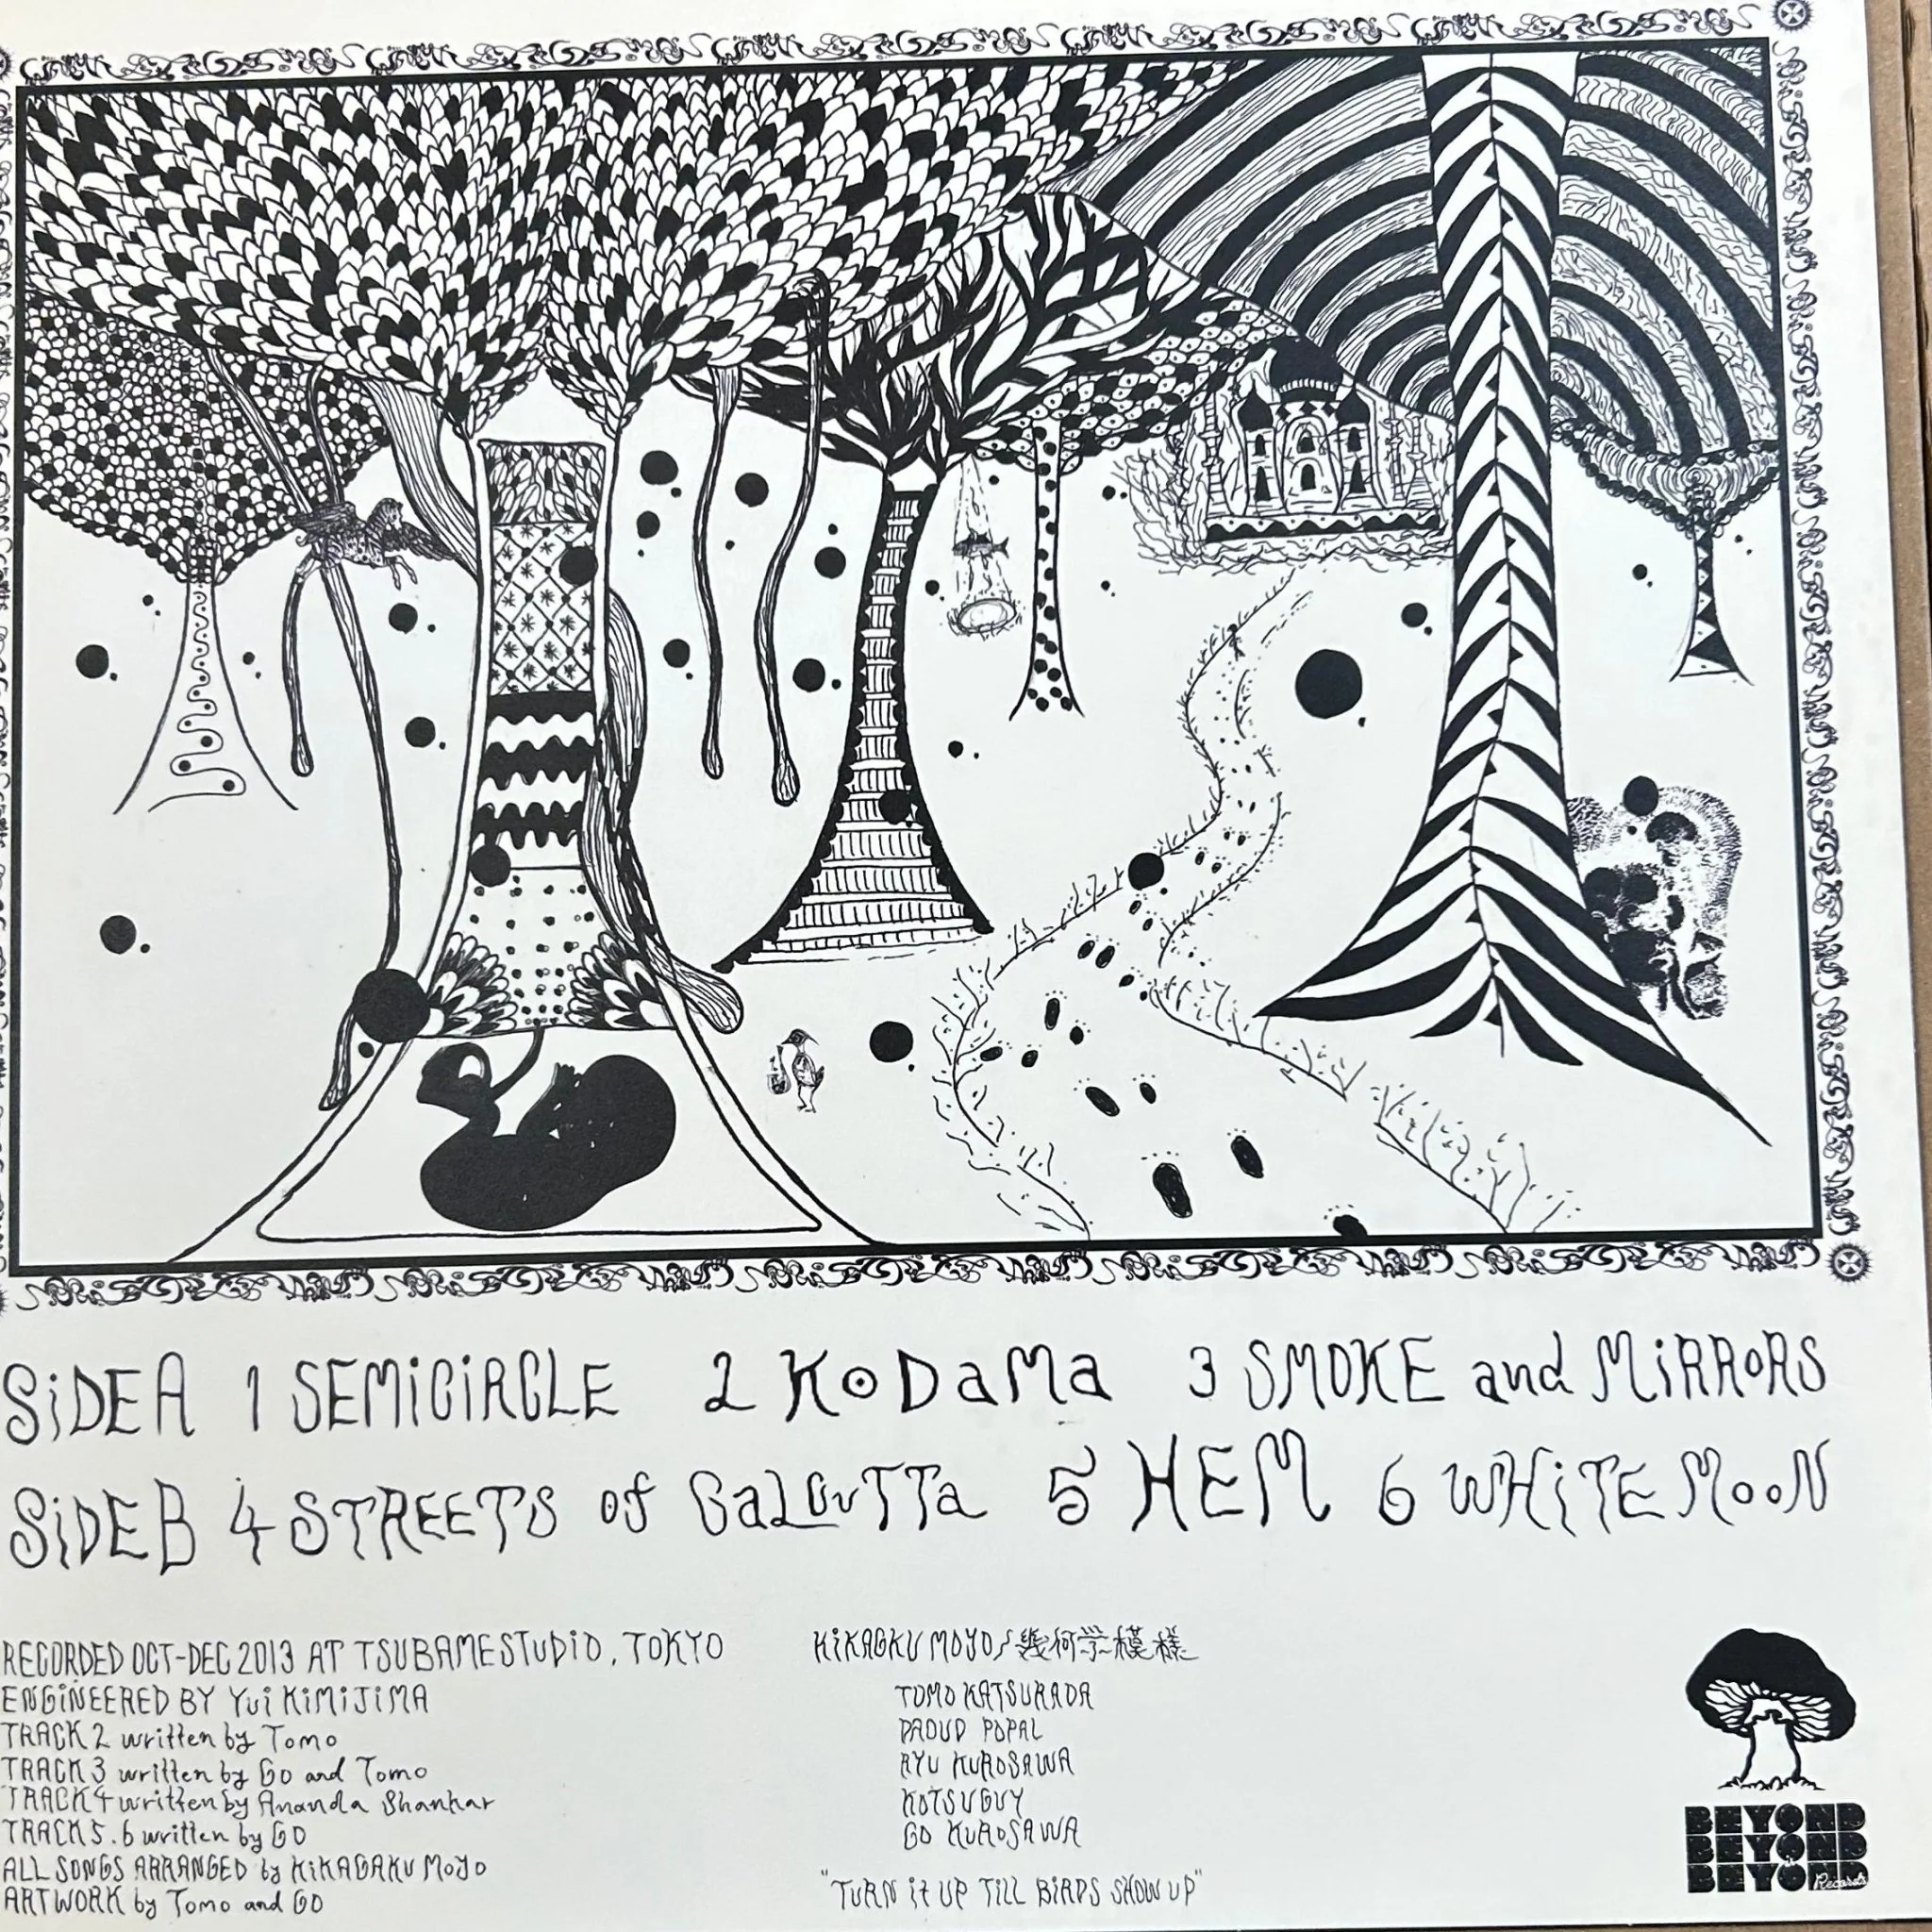 SiDE A 1 SEMiCiRCLE 2 KoDaMa 3 SMOKE and MiRRoRS
SiDE B 4 STREETS of CaLCuTTa 5 HEM 6 WHiTE MooN
RECORDED OCT-DEC 2013 AT TSUBAMESTUDIO, TOKYO
ENGiNEERED BY Yui KiMiJiMA
TRACK 2 written by Tomo
TRACK 3 written by Go and Tomo
TRACK 4 written by Ananda Shankar
TRACK 5.6 written by GO
ALL SONGS ARRANGED by KiKAGAKU MoYo
ARTWORK by Tomo and GO
KiKAGKU MOYO/幾何学模様
TOMO KATSURADA
DAOUD POPAL
RYU KUROSAWA
KOTSUGUY
GO KUROSAWA
"TURN iT UP TiLL BiRDS SHOW UP"
BEYOND
BEYOND
BEYOND
Records